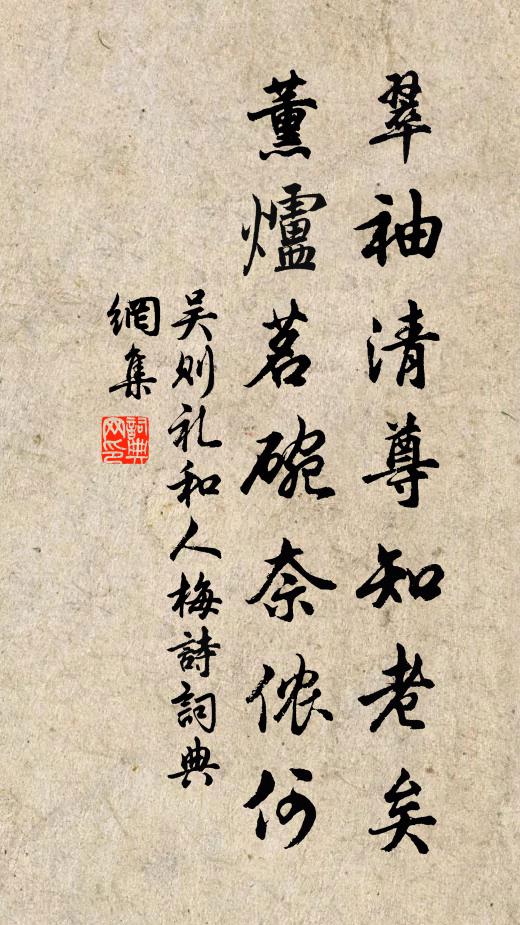 翠袖清尊知老矣
薰爐茗碗奈侬何
吴则礼和人梅詩詞典
網集
詞典网印